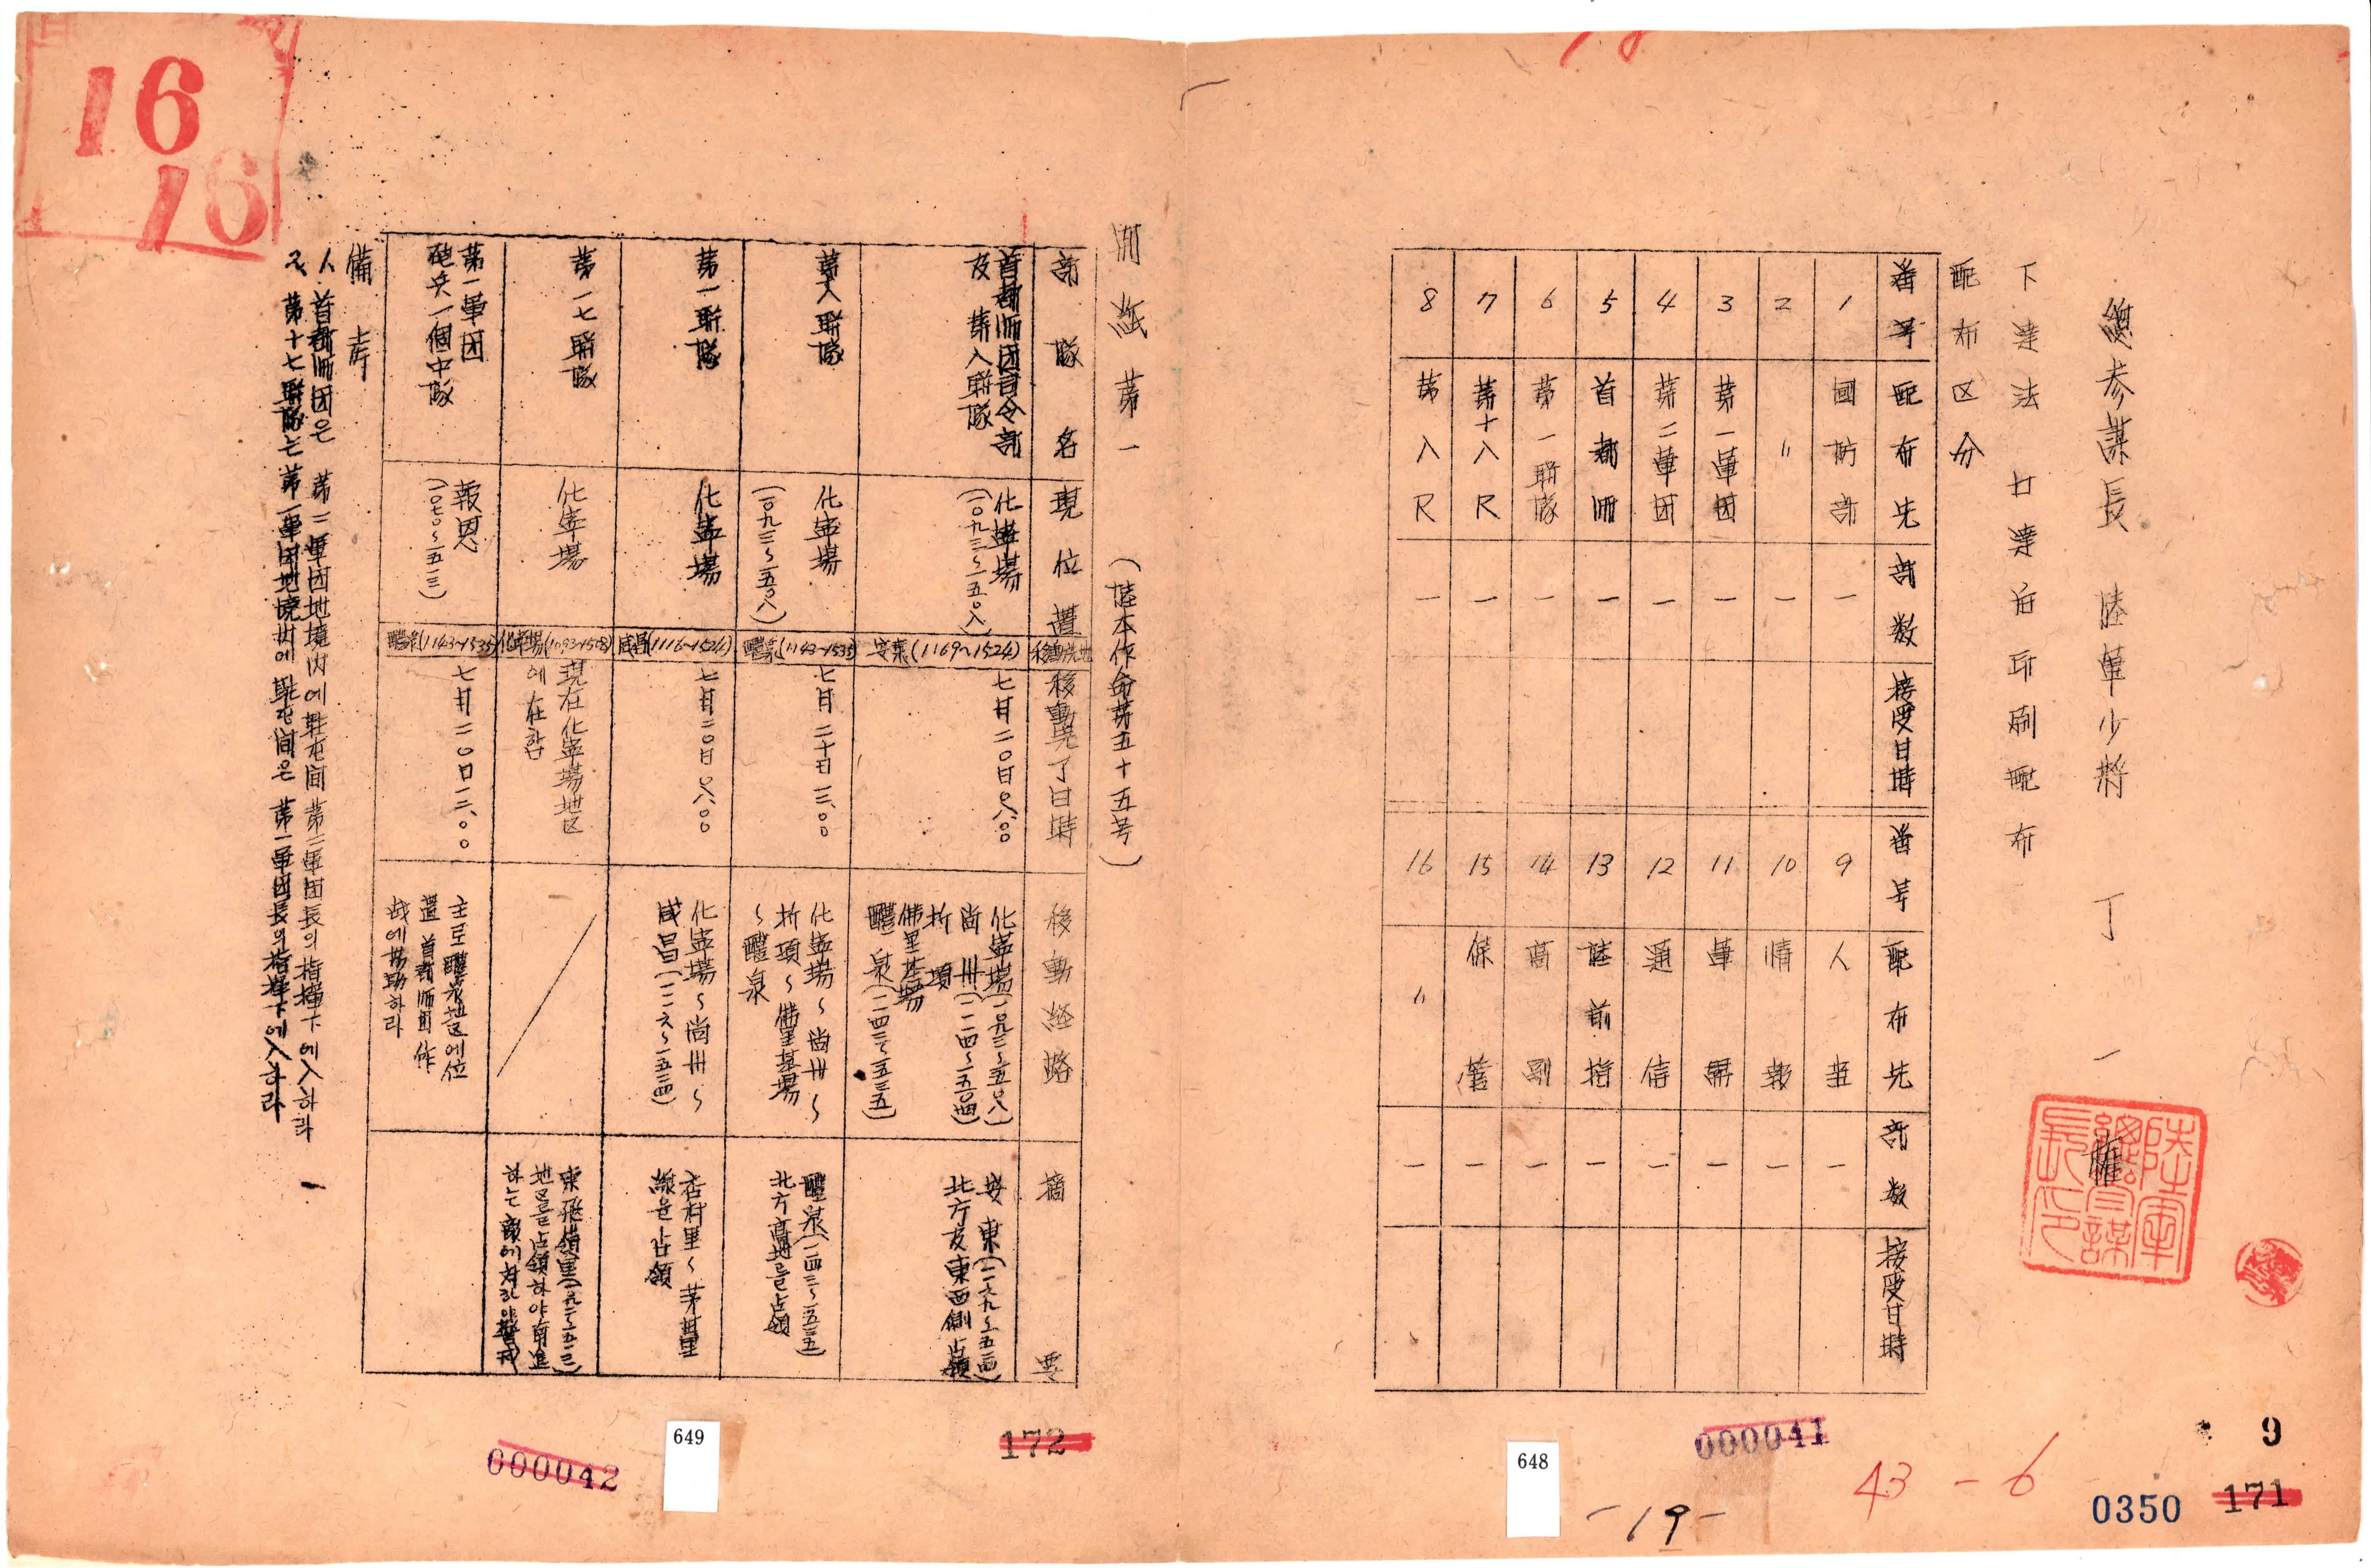 總參謀長 陸軍少將 丁 一 權
下達法 下達后印刷配布
配布区分
番号 配布先 部数 接受日時 番号 配布先 部数 接受日時
1 國防部 一 9 人 一
2 〃 一 10 情報 一
3 第一軍団 一 11 軍 一
4 第二軍団 一 12 通信 一
5 首都師 一 13 陸前指 一
6 第一聯隊 一 14 高副 一
7 第十八R 一 15 保 一
8 第八R 一 16 〃 一
陸軍總參謀長印
別紙第一 (陸本作命第五十五号)
部隊名 現位置 移動完了日時 移動経路 摘要
首都師团司令部
及 第八聯隊
化寧場
(一〇九三~一五〇八)
安東(1169~1524)
七月二〇日〇八.〇〇
化寧場(一〇九三~一五〇八)
尚州(一一二四~一五〇四)
折項
佛里基場
醴泉(一一四三~一五三五)
安東(一一六九~一五二四)
北方及東西側占領
第八聯隊
化寧場
(一〇九三~一五〇八)
醴泉(1143~1535)
七月二十日一三.〇〇
化寧場~尚州~
折項~佛里基場
~醴泉
醴泉(一一四三~一五三五)
北方高地를占領
第一聯隊
化寧場
咸昌(1116~1524)
七月二〇日〇八.〇〇
化寧場~尚州~
咸昌(一一一六~一五二四)
杏村里~茅基里
線을占領
第一七聯隊
化寧場
化寧場(1093~1508)
現在化寧場地区
에在함
東飛嶺里
地區를占領하야南進
하는敵에対하야
第一軍团
砲兵一個中隊
報恩
(一〇七〇~一五一三)
醴泉(1143~1535)
七月二〇日一二.〇〇
主로醴泉地区에位
置首都師团作
战에協助하라
備考
1. 首都師团은 第二軍团地境内에駐屯間第二軍团長의指揮下에入하라
2. 第十七聯隊는第一軍团地境内에駐屯間은第一軍团長의指揮下에入하라
16
16
000042
649
172
648
000041
-19-
43-6
9
0350
171